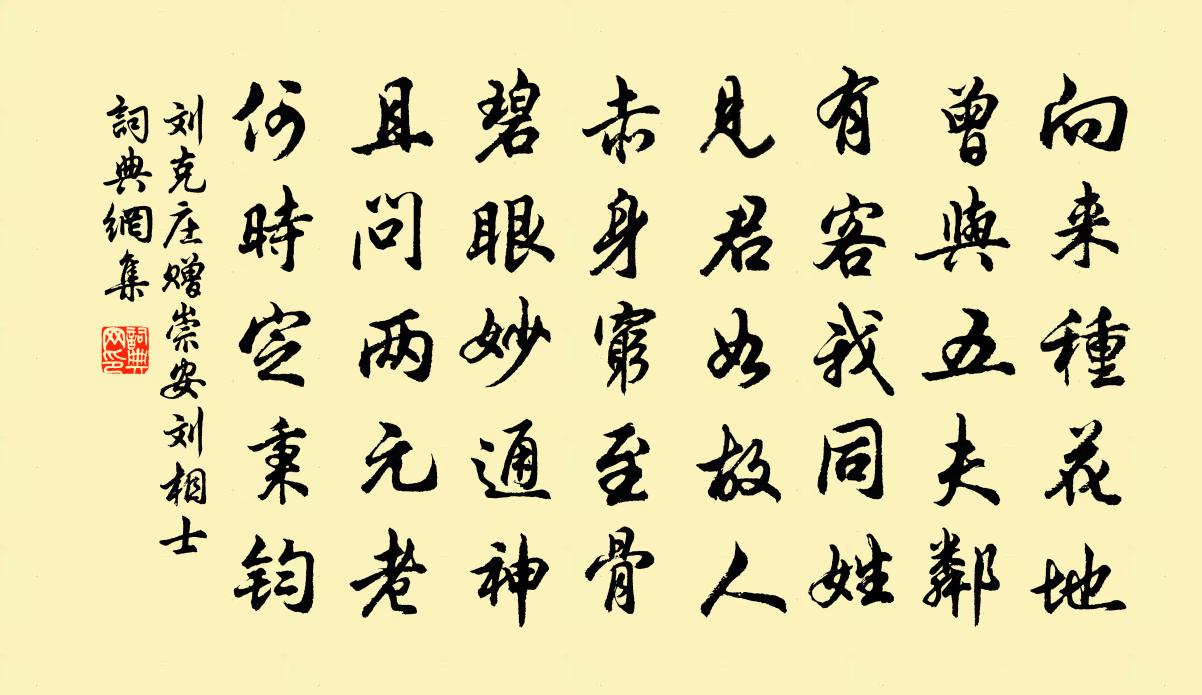 向来種花地
曾與五夫鄰
有客我同姓
見君如故人
赤身窮至骨
碧眼妙通神
且問两元老
何時定秉鈞
刘克庄赠崇安刘相士
詞典網集
詞典网印